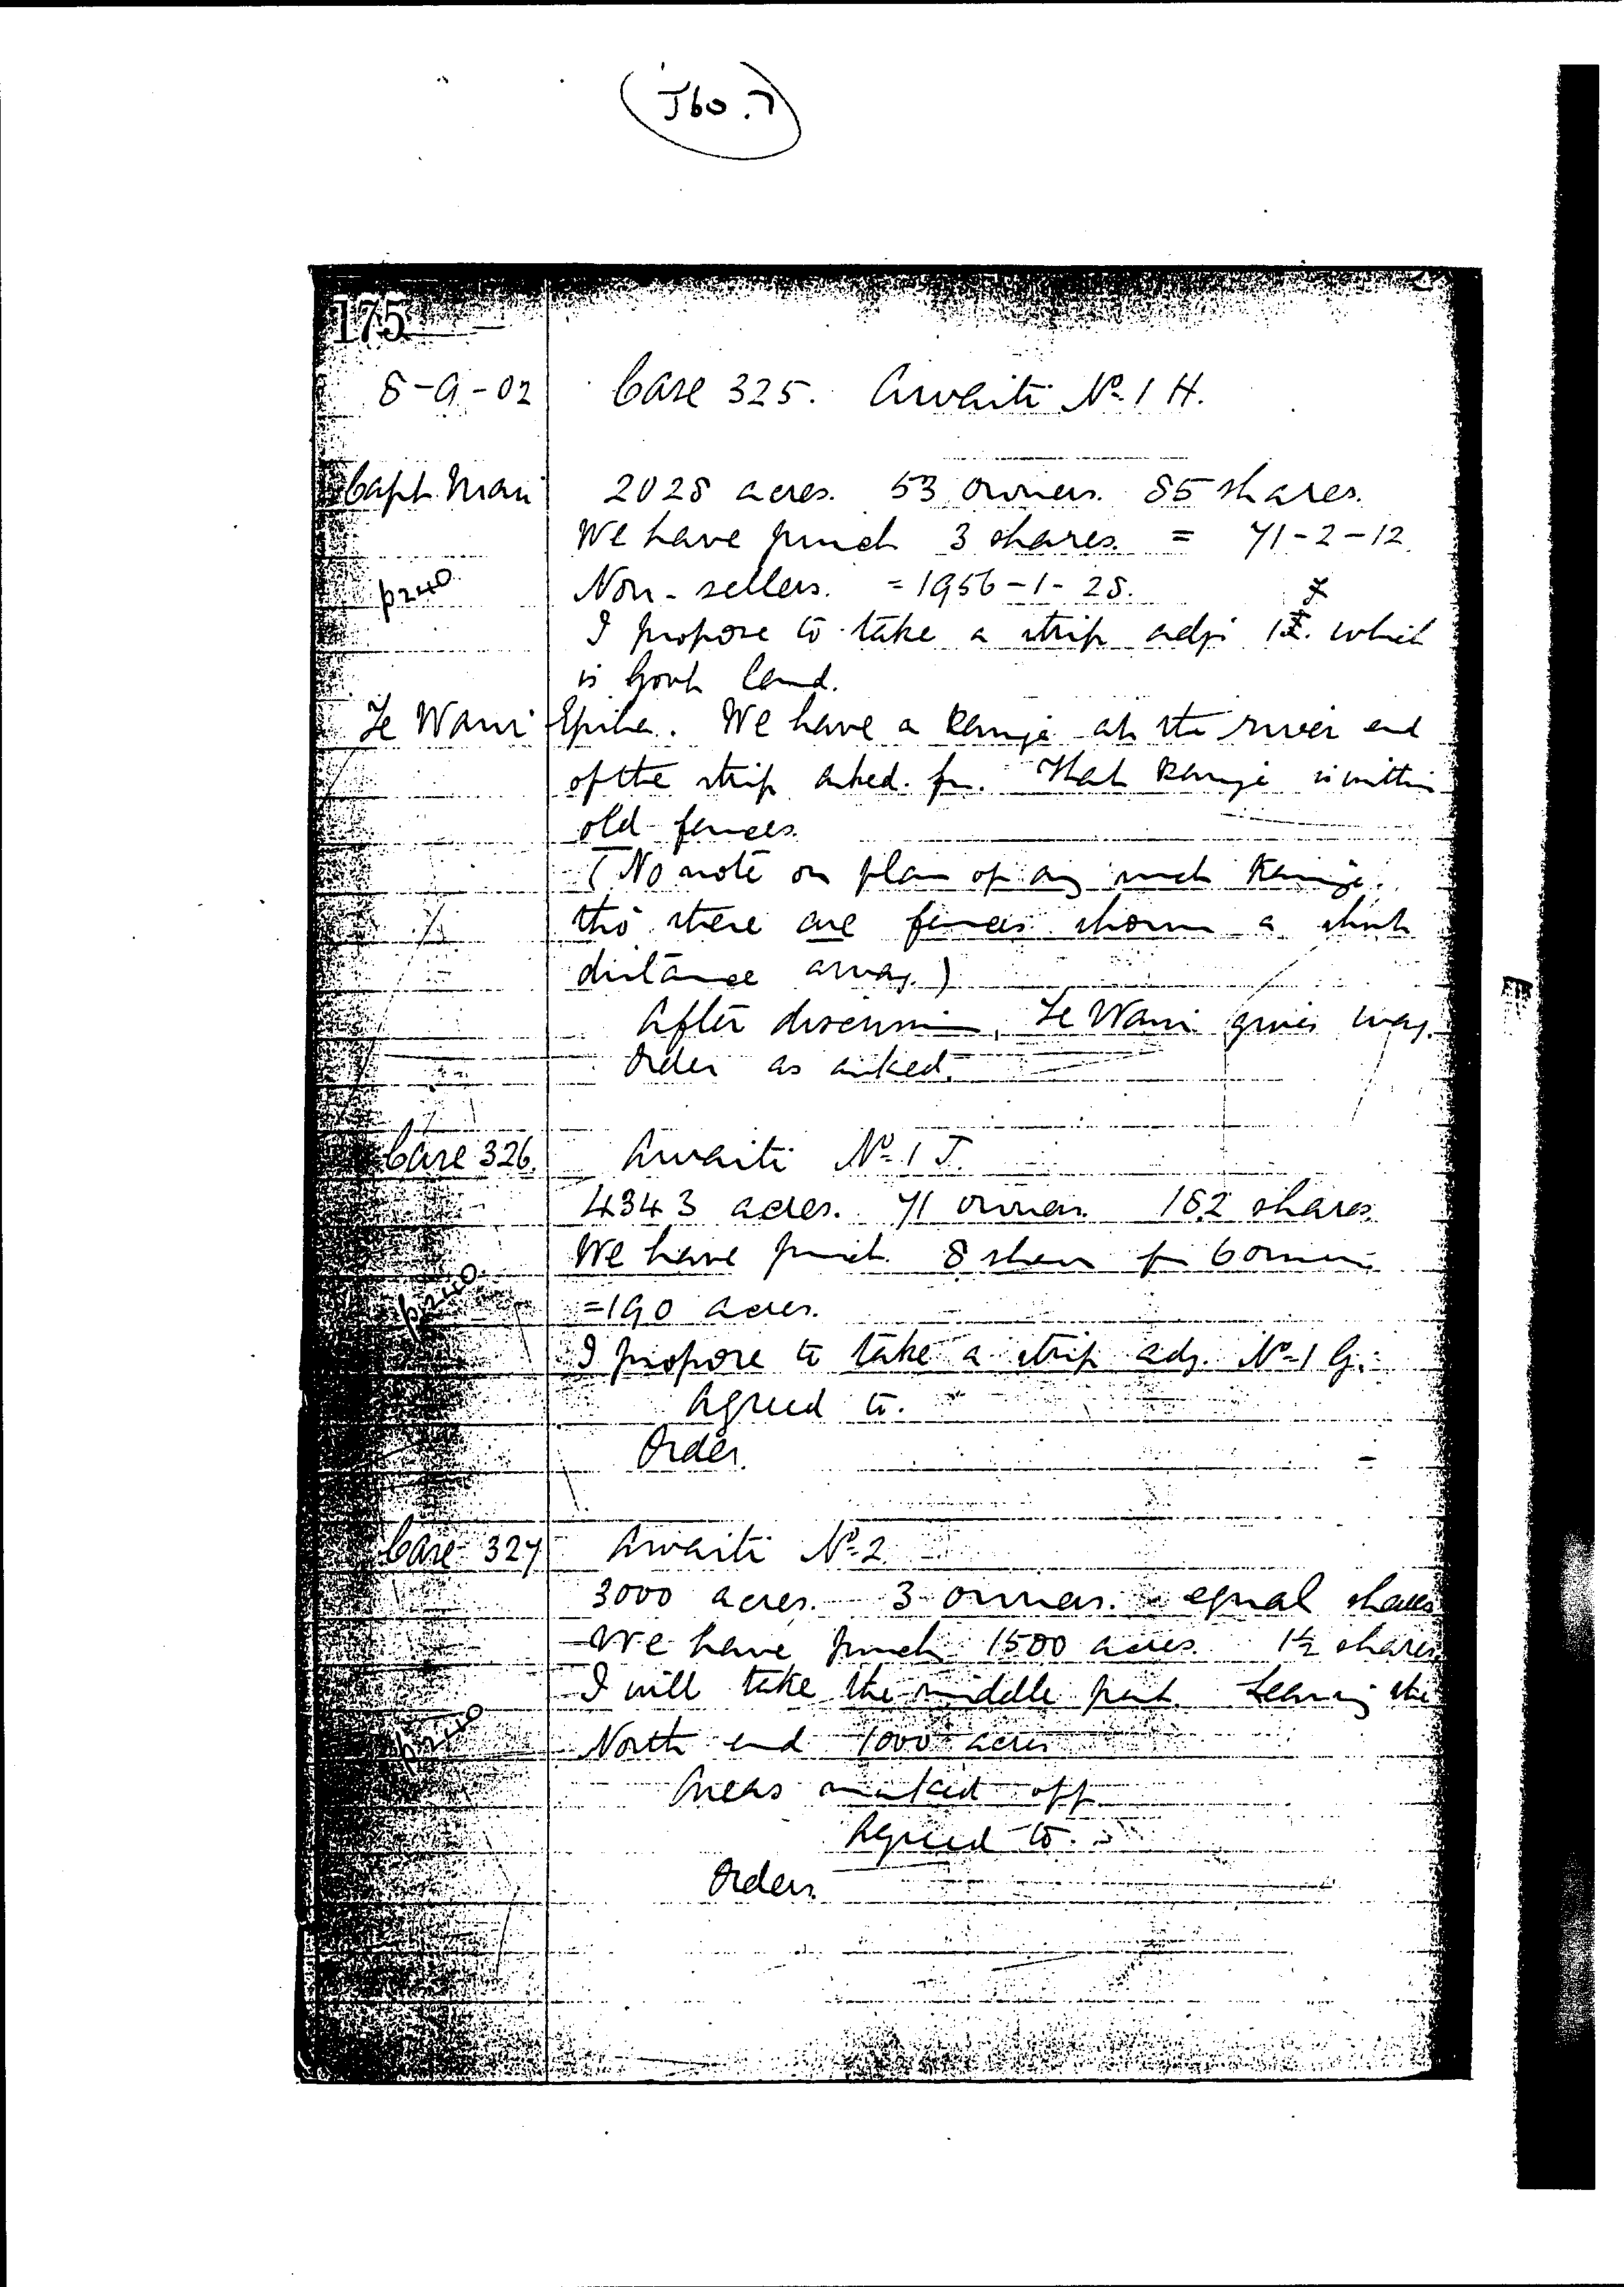 J60.7
175
8-9-02 Case 325. Awaiti No 1 H.
Capt. Mair 2028 acres. 53 owners. 85 shares.
We have purch 3 shares. = 71-2-12
Non-sellers. = 1956-1-28.
p240
I propose to take a strip adj. 1 which
is Govt land.
Te Wani Epiha. We have a Kainga at the river end
of the strip asked for. That Kainga is within
old fences.
(No note on plan of any such Kainga.
tho' there are fences shown a short
distance away.)
After discussion, Te Wani gives way.
Order as asked.
Case 326. Awaiti No 1 J.
4343 acres. 71 owners 182 shares.
We have purch. 8 shares fr 6 owners
p240.
= 190 acres.
I propose to take a strip adj. No 1 G.
Agreed to.
Order.
Case 327 Awaiti No 2
3000 acres. 3 owners. equal shares
We have purch 1500 acres. 1½ shares.
I will take the middle part. Leaving the
p240
North end 1000 acres
Areas marked off
Agreed to.
Orders.